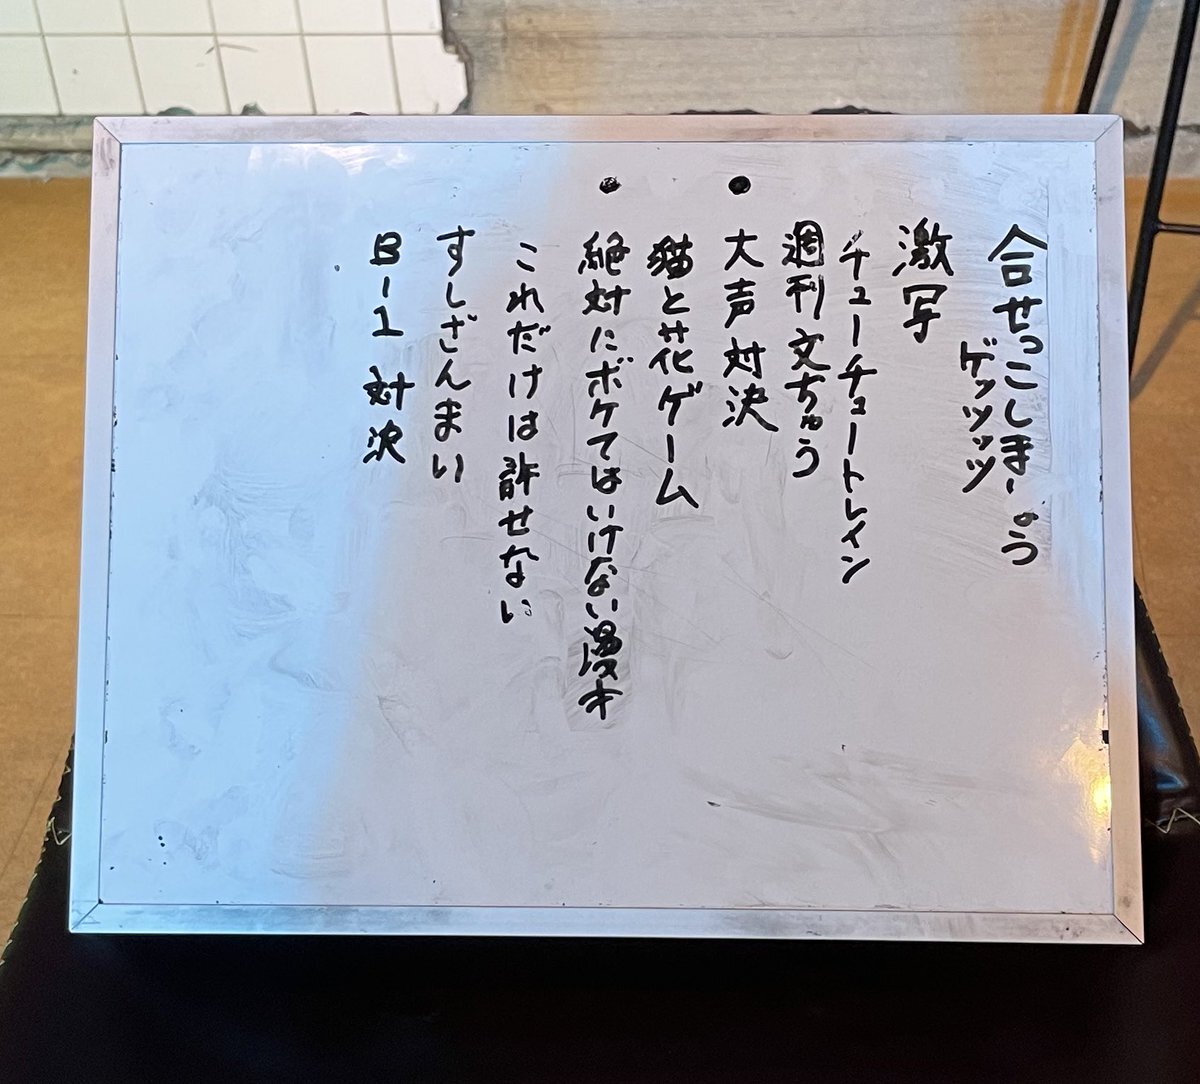 合せっこしましょう
ゲッツッツ
激写
チューチュートレイン
週刊文ちゅう
大声対決
猫と花ゲーム
絶対にボケてはいけない漫才
これだけは許せない
すしざんまい
B-1対決